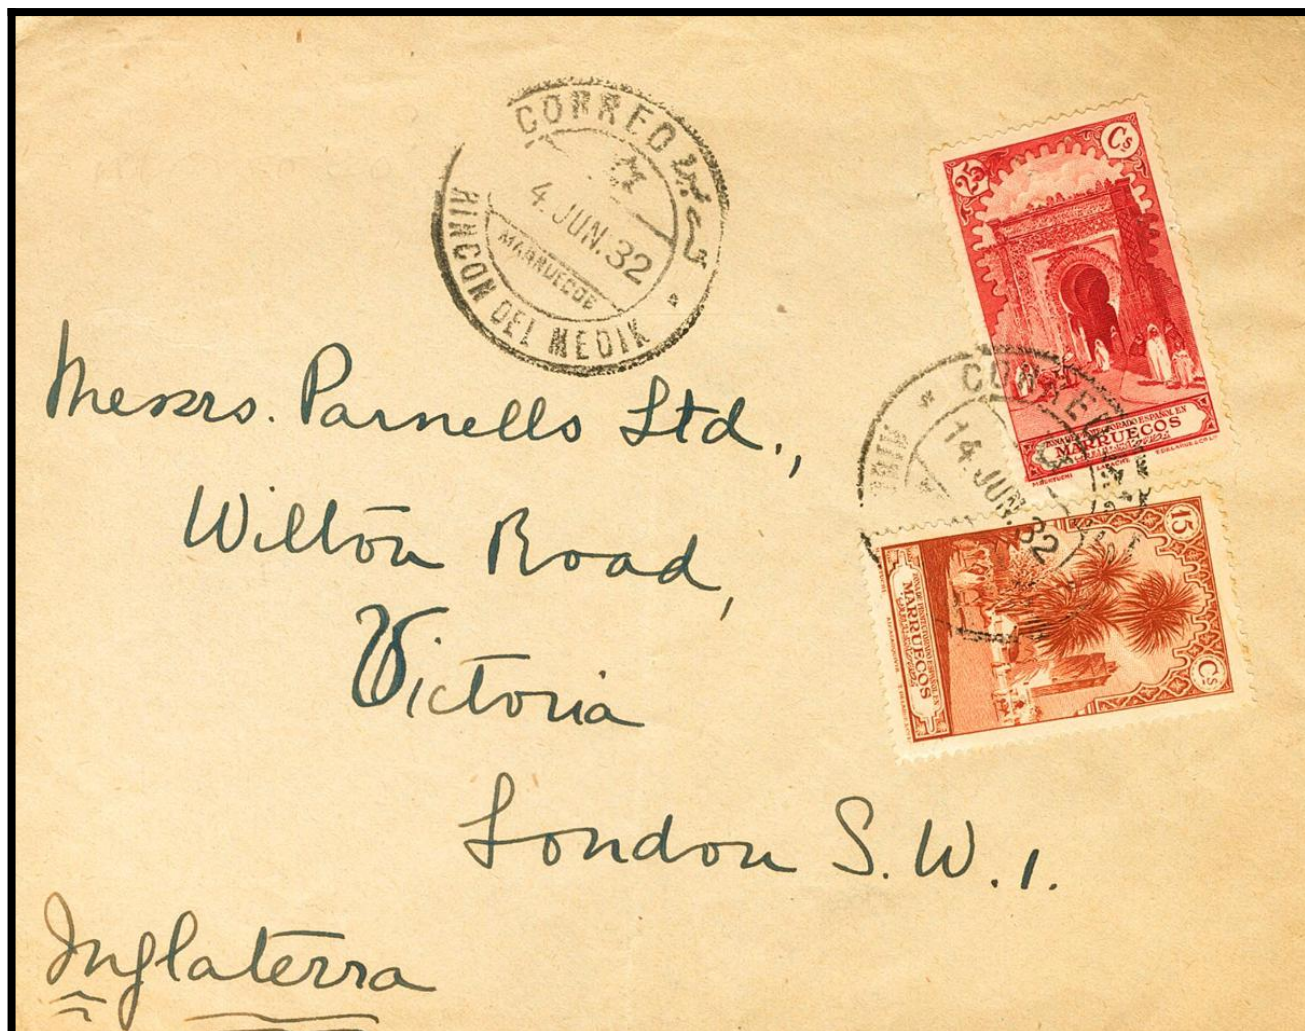 CORREO
4. JUN. 32
MARRUECOS
RINCON DEL MEDIK
25 Cs
ZONA DE PROTECTORADO ESPAÑOL EN
MARRUECOS
LARACHE
CORREO
14. JUN. 32
15 Cs
ZONA DE PROTECTORADO ESPAÑOL EN
MARRUECOS
Messrs. Parnells Ltd.,
Wilton Road,
Victoria
London S.W.1.
Inglaterra